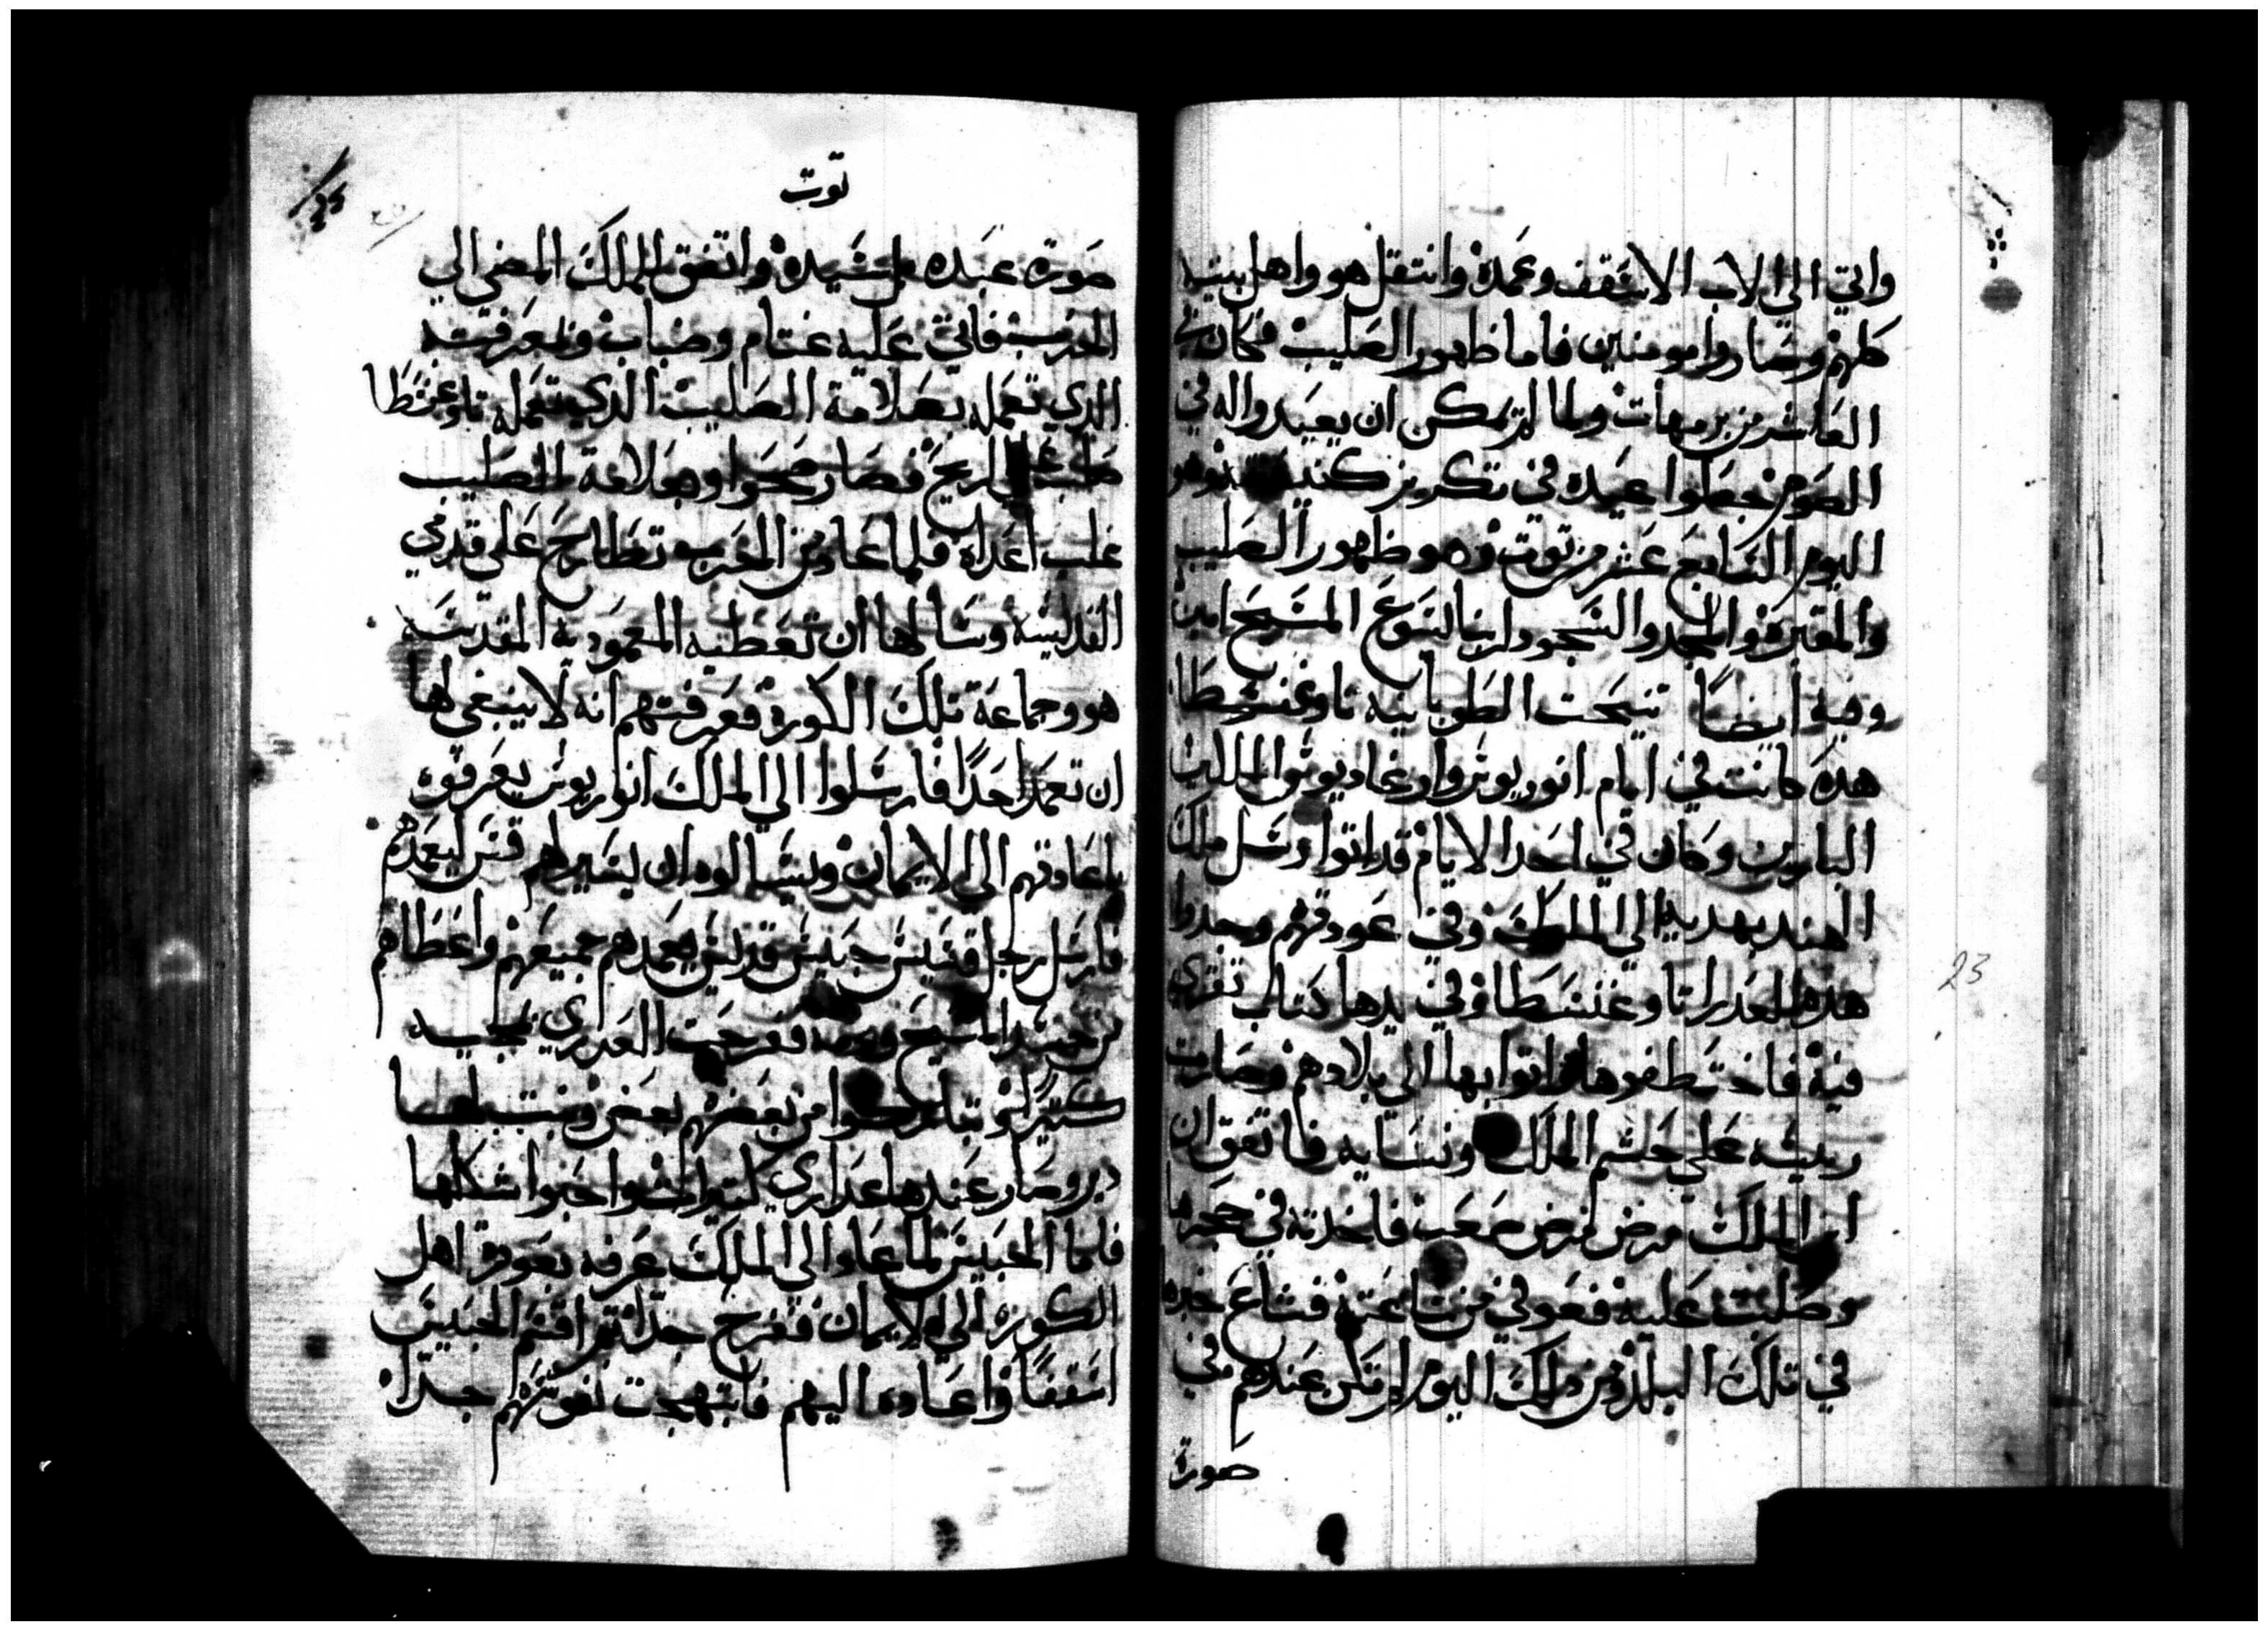 واتي الي الاب الاسقف وعمده وانتقل هو واهل بيته
كلهم وصاروا مومنين فاما ظهور الصليب فكان في
العاشر من برمهات ولما لم يمكن ان يعيدوا له في
الصوم جعلوا عيده في تكريز كنيسته وهو
اليوم السابع عشر من توت وهو ظهور الصليب
والمقبرة والمجد والسجود لربنا يسوع المسيح امين
وفيه ايضًا تنيحت الطوبانيه تاوغنسطا
هده كانت في ايام انوريوس وارغاديوس الملكين
البارين وكان في احد الايام قد اتوا رسل ملك
الهند بهديه الي الملوك وفي عودتهم وجدوا
هده العدرا تاوغنسطا وفي يدها كتاب تقري
فيه فاختطفوها واتوا بها الي بلادهم وصارت
ريسه علي حشم الملك ونسايه فاتفق ان
ابن الملك مرض بمرض صعب فاخدته في حجرها
وصلبت عليه فعوفي من ساعته فشاع خبره
في تلك البلد ومن دلك اليوم لم تكن عندهم في
صورة
توت
صورة عبده بل سيده واتفق للملك المضي الي
الحرب فاتي عليه غتام وضباب ولمعرفته
الدي تعمله بعلامة الصليب الدي تعمله تاوغنسطا
صلب علي الريح فصار صحوا وبعلامة الصليب
غلب اعداه فلما عاد من الحرب تطارح علي قدمي
القديسه وسالها ان تعطيه المعموديه المقدسه
هو وجماعة تلك الكورة فعرفتهم انه لا ينبغي لها
ان تعمد احدًا فارسلوا الي الملك انوريوس يعرفوه
باعادتهم الي الايمان ويسالوه ان يسير لهم قس ليعمدهم
فارسل رجل قسيس حبيس قديس يعمدهم جميعهم واعطاهم
من جسد المسيح ودمه ففرحت العدري بمجييه
كتيرًا وتباركوا من بعضهم بعض وبنت لها
دير وصار عندها عداري كتيرات واختوا شكلها
فاما الحبيس لما عاد الي الملك عرفه بعودة اهل
الكورة الي الايمان ففرح جدًا تم اقسم الحبيس
اسقفًا واعاده اليهم فابتهجت نفوسهم جدًا
23